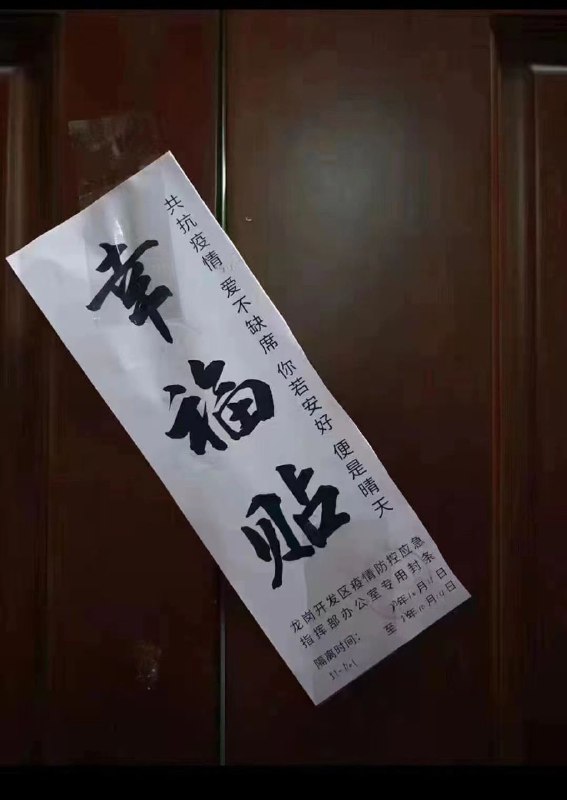 幸福贴
共抗疫情 爱不缺席 你若安好 便是晴天
龙岗开发区疫情防控应急
指挥部办公室专用封条
隔离时间：
年10月11日
至 年10月14日